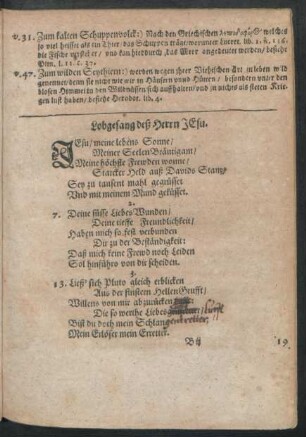 v. 31. Zum kalten Schuppenvolck:) Nach den Griechischen welches
so viel heisset als ein Thier das Schuppen
die Fische und kan hierdurch das Meer angedeutet werden/ besihe
Plin. l. 11. c. 37.
v. 47. Zum wilden Scythien:) werden wegen ihrer Viehischen Art zu leben wild
genennet/ denn sie nicht wie wir in Häusern und Hütten/ besondern unter den
blosen Himmel in den Wildnüssen sich auffhalten/ und in nichts als steten Krie-
gen lust haben/ besiehe Herodot. lib. 4.
Lobgesang deß Herrn JEsu.
JESu/ meine lebens Sonne/
Meiner Seelen Bräutigam/
Meine höchste Frewden wonne/
Starcker Held auß Davids Stam/
Sey zu tausent mahl gegrüsset
Und mit meinem Mund geküsset.
2.
7. Deine süsse Liebes Wunden/
Deine tieffe Freundligkeit/
Haben mich so fest verbunden
Dir zu der Beständigkeit:
Daß mich keine Frewd noch Leiden
Sol hinführo von dir scheiden.
3.
13. Liess' sich Pluto gleich erblicken
Aus der finstern Hellen Grufft/
Willens von mir abzurücken
Die so werthe Liebes
Bist du doch mein Schlangentretter,
Mein Erlöser mein Erretter.
B ij
19.